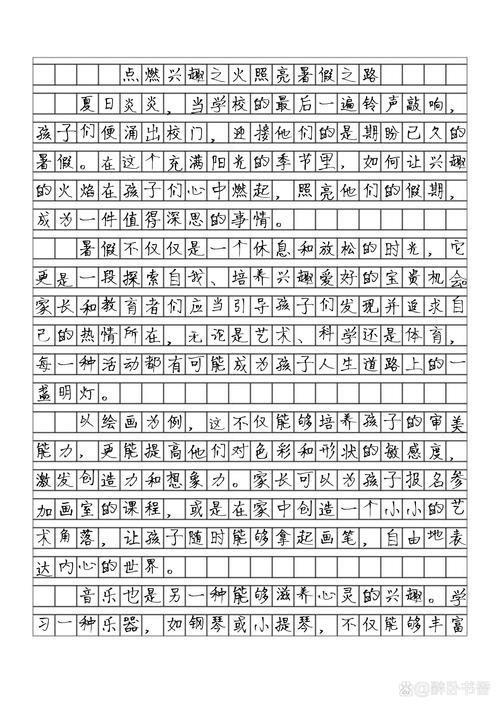 点燃兴趣之火照亮暑假之路
夏日炎炎，当学校的最后一遍铃声敲响，
孩子们便涌出校门，迎接他们的是期盼已久的
暑假。在这个充满阳光的季节里，如何让兴趣
的火焰在孩子们心中燃起，照亮他们的假期，
成为一件值得深思的事情。
暑假不仅仅是一个休息和放松的时光，它
更是一段探索自我、培养兴趣爱好的宝贵机会
家长和教育者们应当引导孩子们发现并追求自
己的热情所在，无论是艺术、科学还是体育，
每一种活动都有可能成为孩子人生道路上的一
盏明灯。
以绘画为例，这不仅能够培养孩子的审美
能力，更能提高他们对色彩和形状的敏感度，
激发创造力和想象力。家长可以为孩子报名参
加画室的课程，或是在家中创造一个小小的艺
术角落，让孩子随时能够拿起画笔，自由地表
达内心的世界。
音乐也是另一种能够滋养心灵的兴趣。学
习一种乐器，如钢琴或小提琴，不仅能够丰富
@醉卧书香